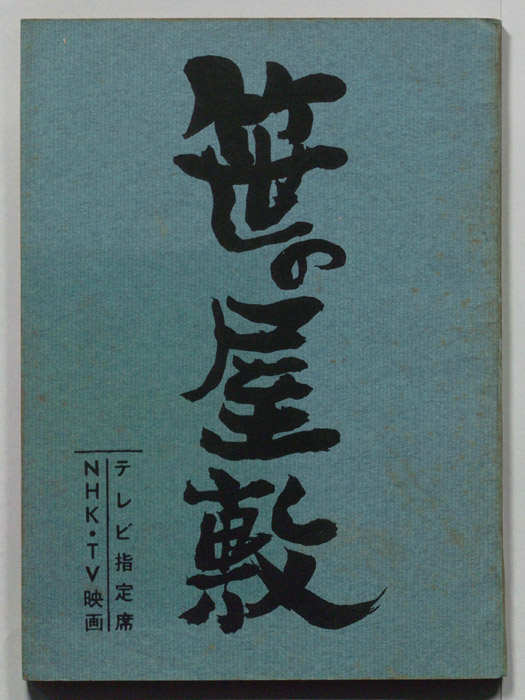 笹の屋敷
テレビ指定席
NHK・TV映画